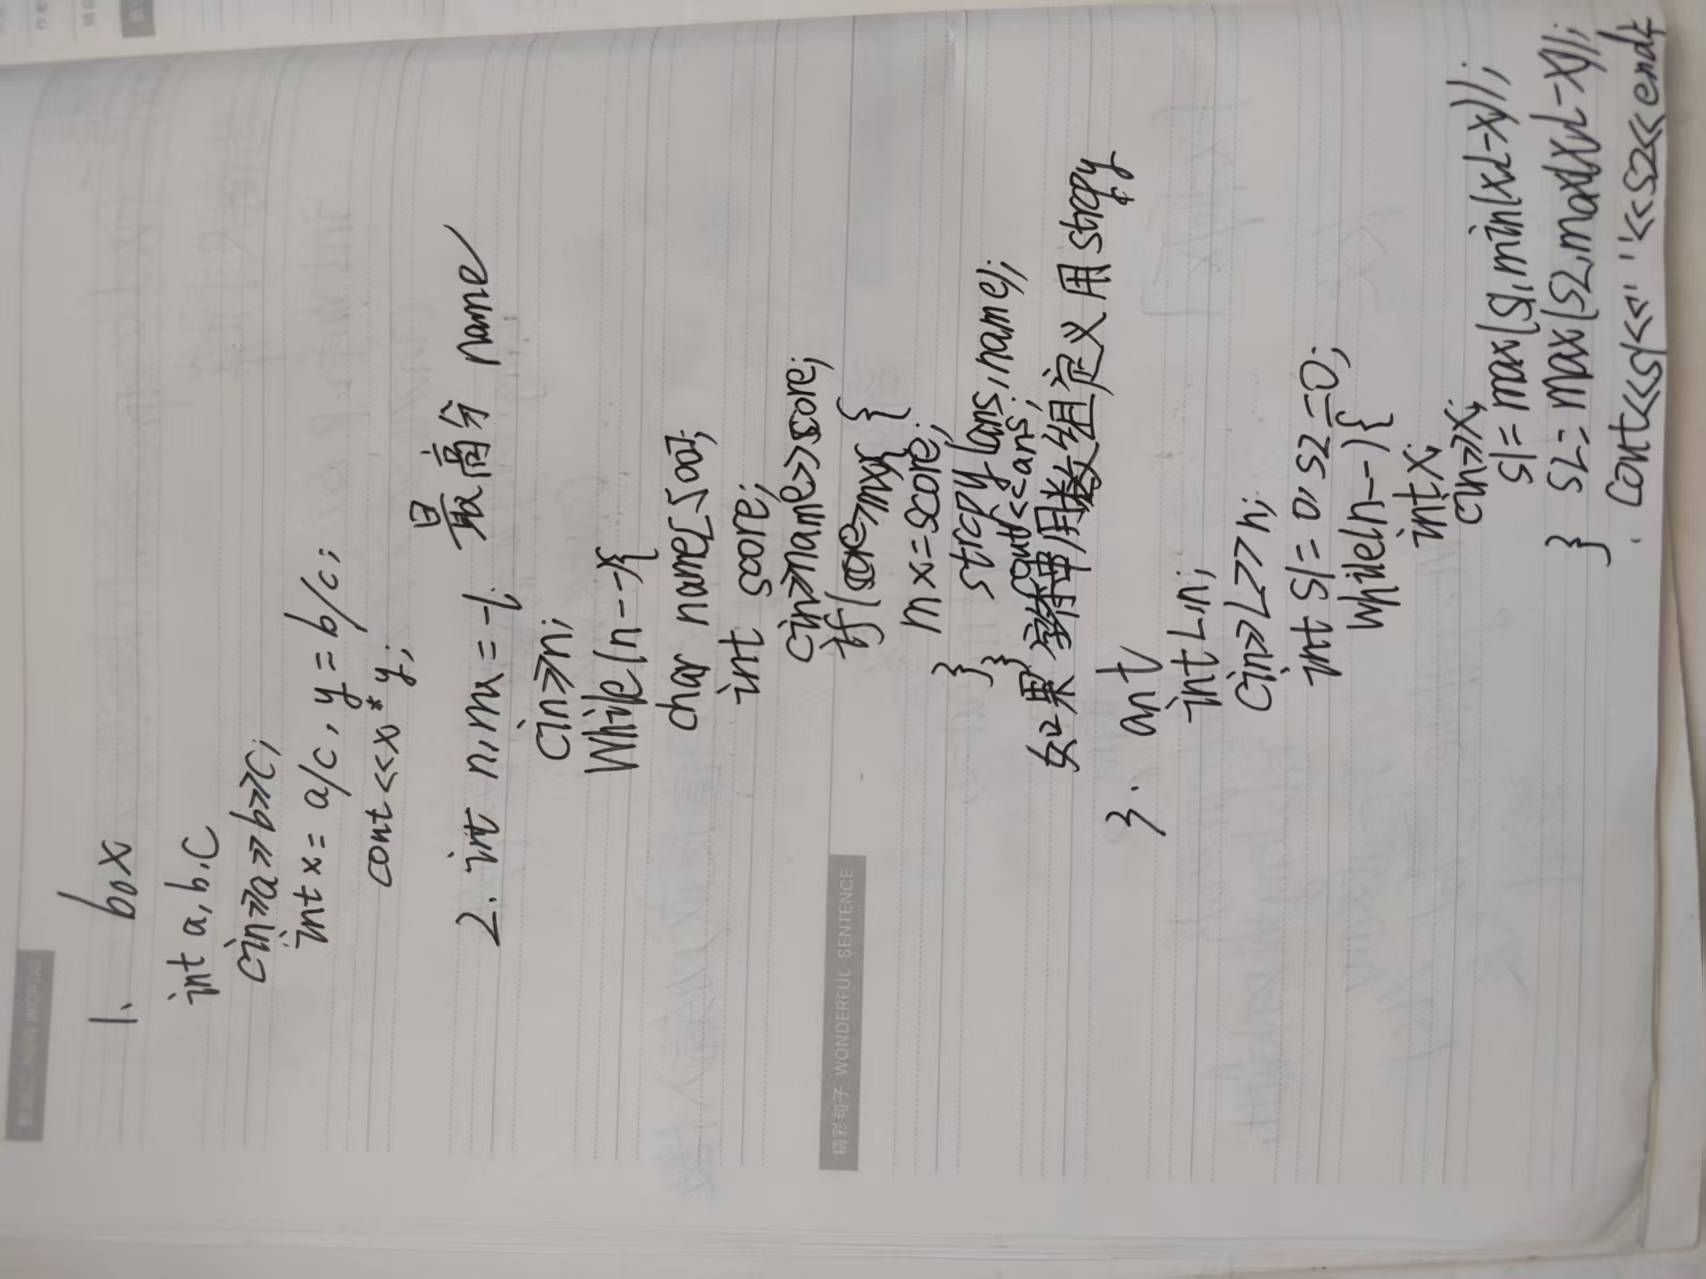 1. box
int a, b, c
cin>>a>>b>>c;
int x = a/c, y = b/c;
cout<<x*y;
最高分 name
2. int n, mx = -1;
cin>>n;
while(n--){
char name[500];
int score;
cin>>name>>score;
if(score>mx){
mx=score;
strcpy(ans,name);
}
}
cout<<ans;
如果字符串用数组定义用strcpy
3. ant
int L,n;
cin>>L>>n;
int s1=0,s2=0;
while(n--){
int x;
cin>>x;
s1=max(s1,min(x,L-x));
s2=max(s2,max(x,L-x));
}
cout<<s1<<" "<<s2<<endl;
精彩句子 WONDERFUL SENTENCE